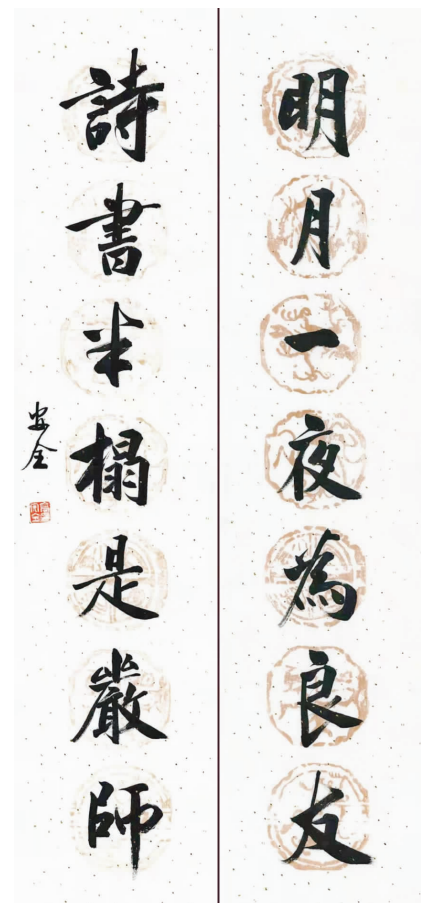 明月一夜為良友
詩書半榻是嚴師
安全